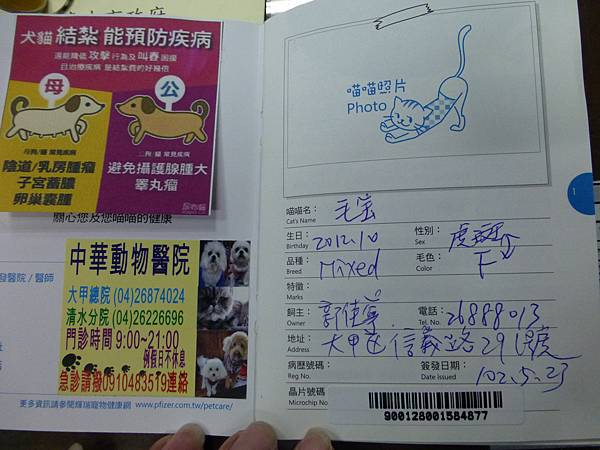 犬貓 結紮 能預防疾病
還能降低 攻擊 行為及 叫春 困擾
且治療疾病 是結紮費的好幾倍
母
公
母狗/貓 常見疾病
陰道/乳房腫瘤
子宮蓄膿
卵巢囊腫
公狗/貓 常見疾病
避免攝護腺腫大
睪丸瘤
關心您及您喵喵的健康
發醫院 / 醫師
中華動物醫院
大甲總院 (04)26874024
清水分院 (04)26226696
門診時間 9:00~21:00
例假日不休息
急診請撥0910483519連絡
更多資訊請參閱輝瑞寵物健康網 www.pfizer.com.tw/petcare/
喵喵照片
Photo
1
喵喵名:
Cat's Name
毛蛋
生日:
Birthday
2012.10
性別:
Sex
虎斑
品種:
Breed
Mixed
毛色:
Color
F
特徵:
Marks
飼主:
Owner
電話:
Tel. No.
26888013
地址:
Address
大甲區信義路29號
病歷號碼:
Reg No.
簽發日期:
Date issued
102.5.23
晶片號碼
Microchip No
900128001584877